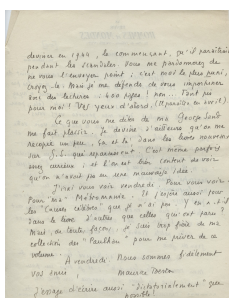 devinais en 1944, le commençant, qu'il paraîtrait
pendant les scandales. Vous me pardonnerez de
ne vous l'envoyer point ; c'est moi le plus puni,
croyez-le. Mais je me défends de vous importuner
avec des lectures. 400 pages ! non... Tant pis
pour moi ! Vos yeux d'abord. (Il paraîtra en avril).
Ce que vous me dites de ma George Sand
me fait plaisir. Je devine d'ailleurs qu'on me
un peu, çà et là, dans les livres nouveaux
sur G.S. qui apparaissent. C'est même parfois
assez curieux, et l'on est bien content de voir
qu'on n'avait pas eu une mauvaise idée.
J'irai vous voir vendredi. Pour vous voir.
Pour "ma" Métromanie. Et j'aurai aussi pour
les "Causes célèbres" que je n'ai pas. Y en a-t-il
dans le livre d'autres que celles qui ont paru ?
Mais, de toute façon, je suis trop fier de ma
collection des "Paulhan" pour me priver de ce
volume.
A vendredi. Nous sommes fidèlement
vos amis,
Maurice
J'essaye d'écrire aussi "dictatorialement" que
possible !